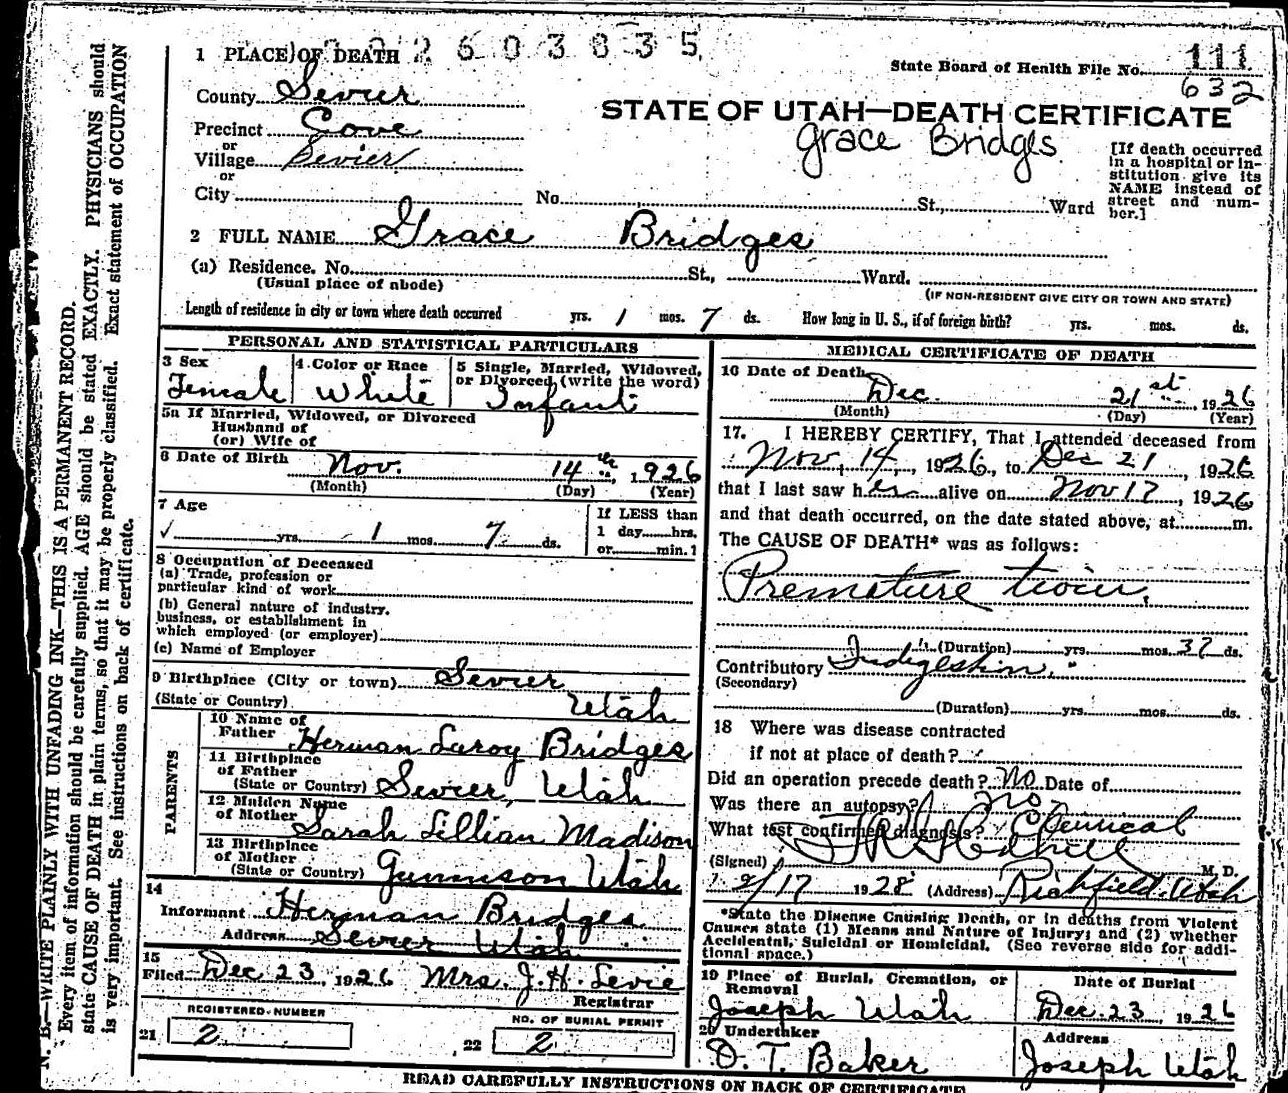 2603835
1 PLACE OF DEATH
State Board of Health File No. 111
632
County Sevier
STATE OF UTAH—DEATH CERTIFICATE
Precinct Cove
Grace Bridges
or
Village Sevier
or
City No. St., Ward
[If death occurred
in a hospital or in-
stitution give its
NAME instead of
street and num-
ber.]
2 FULL NAME Grace Bridges
(a) Residence. No. St., Ward.
(Usual place of abode)
(IF NON-RESIDENT GIVE CITY OR TOWN AND STATE)
Length of residence in city or town where death occurred yrs. 1 mos. 7 ds. How long in U. S., if of foreign birth? yrs. mos. ds.
PERSONAL AND STATISTICAL PARTICULARS
3 Sex
Female
4 Color or Race
White
5 Single, Married, Widowed,
or Divorced (write the word)
Infant
5a If Married, Widowed, or Divorced
Husband of
(or) Wife of
6 Date of Birth
Nov. 14 th, 1926
(Month) (Day) (Year)
7 Age
✓ yrs. 1 mos. 7 ds.
If LESS than
1 day hrs.
or min.?
8 Occupation of Deceased
(a) Trade, profession or
particular kind of work
(b) General nature of industry,
business, or establishment in
which employed (or employer)
(c) Name of Employer
9 Birthplace (City or town) Sevier
(State or Country) Utah
PARENTS
10 Name of
Father Herman Leroy Bridges
11 Birthplace
of Father
(State or Country) Sevier, Utah
12 Maiden Name
of Mother Sarah Lillian Madison
13 Birthplace
of Mother
(State or Country) Gunnison Utah
14
Informant Herman Bridges
Address Sevier Utah
15
Filed Dec 23, 1926 Mrs. J. H. Levie
Registrar
REGISTERED NUMBER
21 2
NO. OF BURIAL PERMIT
22 2
MEDICAL CERTIFICATE OF DEATH
16 Date of Death
Dec. 21 st, 1926
(Month) (Day) (Year)
17. I HEREBY CERTIFY, That I attended deceased from
Nov, 14, 1926, to Dec 21, 1926
that I last saw her alive on Nov 17, 1926
and that death occurred, on the date stated above, at m.
The CAUSE OF DEATH* was as follows:
Premature twin.
(Duration) yrs. mos. 37 ds.
Contributory Indigestion.
(Secondary)
(Duration) yrs. mos. ds.
18 Where was disease contracted
if not at place of death?
Did an operation precede death? No Date of
Was there an autopsy? no.
What test confirmed diagnosis? Clinical
(Signed) M. D.
2/17 1928 (Address) Richfield Utah
*State the Disease Causing Death, or in deaths from Violent
Causes state (1) Means and Nature of Injury; and (2) whether
Accidental, Suicidal or Homicidal. (See reverse side for addi-
tional space.)
19 Place of Burial, Cremation, or
Removal
Joseph Utah
Date of Burial
Dec. 23, 1926
20 Undertaker
O. T. Baker
Address
Joseph Utah
READ CAREFULLY INSTRUCTIONS ON BACK OF CERTIFICATE
N. B.—WRITE PLAINLY WITH UNFADING INK—THIS IS A PERMANENT RECORD.
Every item of information should be carefully supplied. AGE should be stated EXACTLY. PHYSICIANS should
state CAUSE OF DEATH in plain terms, so that it may be properly classified. Exact statement of OCCUPATION
is very important. See instructions on back of certificate.